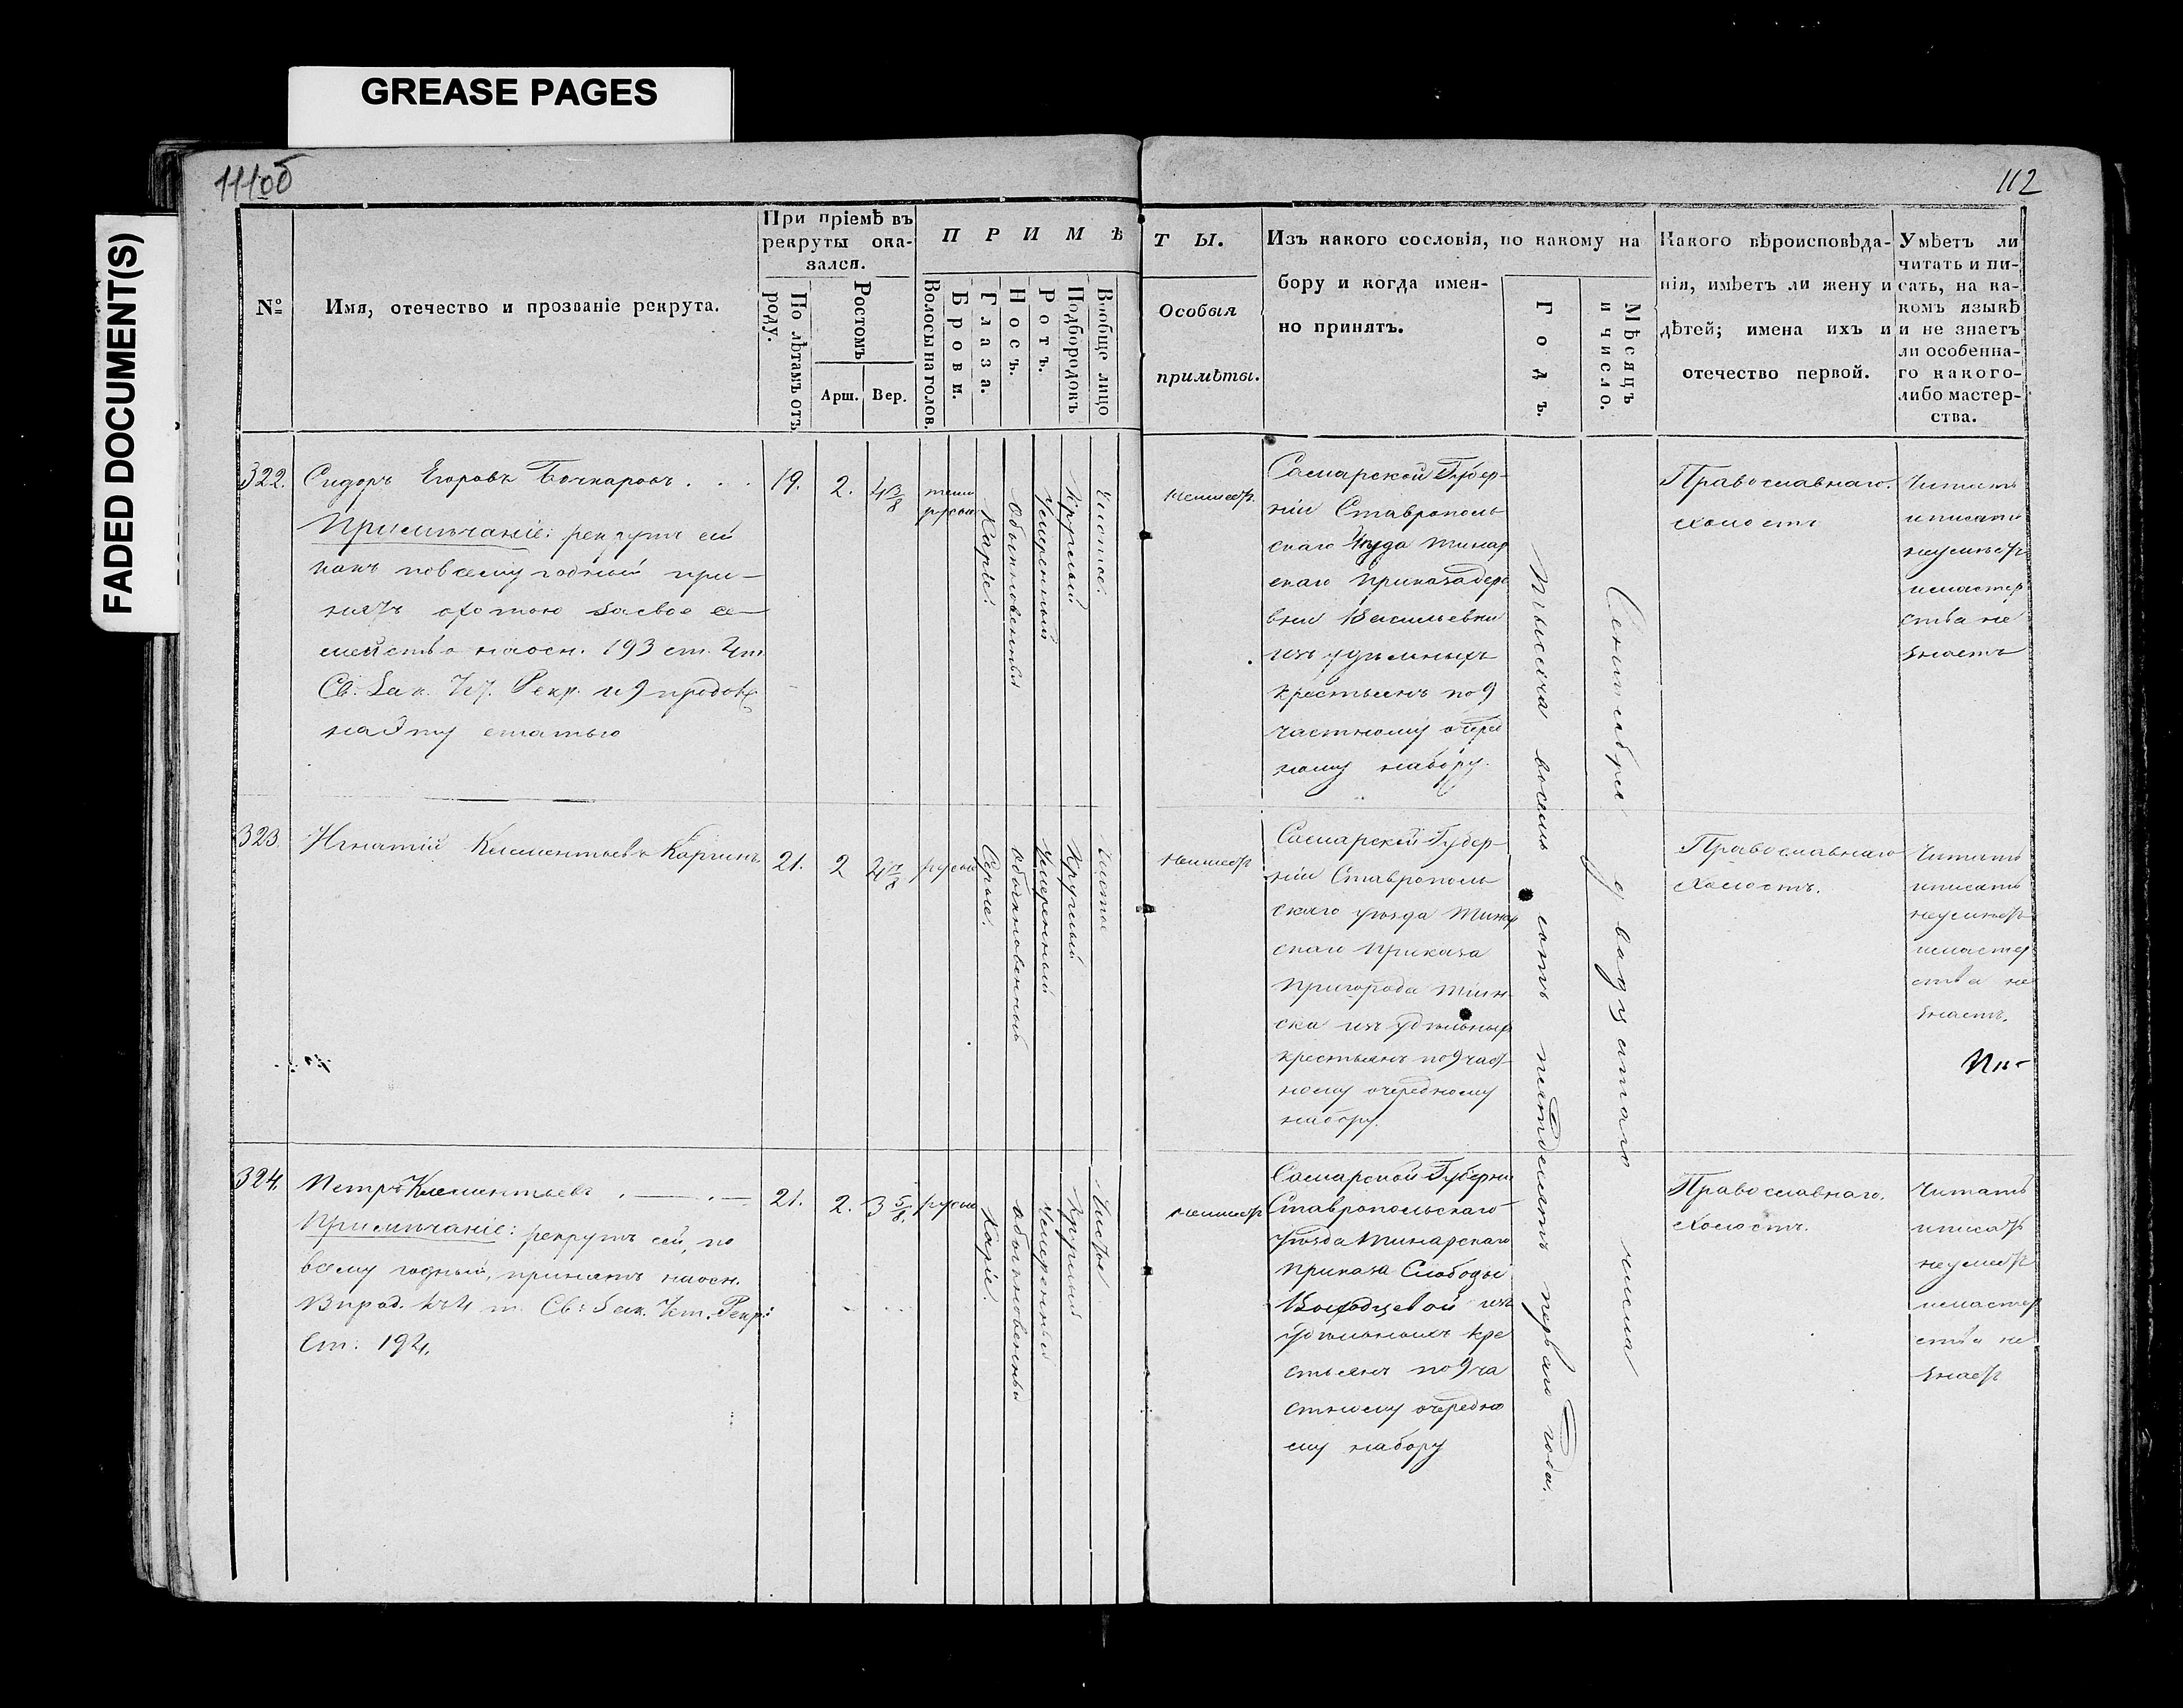 GREASE PAGES
FADED DOCUMENT(S)
111об
112
№
Имя, отечество и прозваніе рекрута.
При пріемѣ въ
рекруты ока-
зался.
По лѣтамъ отъ
роду.
Ростомъ
Арш.
Вер.
ПРИМѢ
ТЫ.
Волосы на голов.
Брови.
Глаза.
Носъ.
Ротъ.
Подбородокъ
Вообще лицо
Особыя
примѣты.
Изъ какого сословія, по какому на
бору и когда имен-
но принятъ.
Годъ.
Мѣсяцъ
и число.
Какого вѣроисповѣда-
нія, имѣетъ ли жену и
дѣтей; имена ихъ и
отечество первой.
Умѣетъ ли
читать и пи-
сать, на ка-
комъ языкѣ
и не знаетъ
ли особенна-
го какого-
либо мастер-
ства.
322.
Сидоръ Егоровъ Бочкаровъ . . .
Примѣчаніе: рекрутъ сей
какъ повсему годный при-
нятъ охотою за свое се-
мейство на осн. 193 ст. 4 т.
Св: Зак. Уст. Рекр. и 9 продолж
на эту статью
19.
2.
4 3/8
темно
русые
Каріе.
Обыкновенный
Умеренный
Круглый
Чистое.
неимеет.
Самарской Губер-
ніи Ставрополь
скаго Уѣзда Тинар
скаго Приказа дере
вни Васильевки
изъ удѣльныхъ
крестьянъ по 9
частному очеред
ному набору.
Тысяча восемь сотъ пятдесятъ перваго Года.
Сентября двадцатаго числа
Православнаго.
холостъ
Читать
иписать
неумѣетъ
имастер
ства не
знаетъ
323.
Игнатій Климентьевъ Каргинъ
21.
2
4 7/8
русые
Серые.
Обыкновенный
Умеренный
Круглый
Чистое
неимеет
Самарской Губер-
ніи Ставрополь
скаго уѣзда Тинар
скаго Приказа
Пригорода Тіин-
ска изъ удѣльных
крестьянъ по 9 част
ному очередному
набору.
Православнаго
холостъ.
Читать
иписать
неумѣетъ
имастер
ства не
знаетъ.
324.
Петръ Климентьевъ
Примѣчаніе: рекрутъ сей, по
всему годный, принятъ на осн.
В прод. къ 4 т. Св: Зак. Уст. Рекр:
Ст: 194.
21.
2.
3 5/8.
русые
Каріе.
обыкновенный
Умеренный
Круглый
Чистое
неимеет
Самарской Губерніи
Ставропольскаго
Уѣзда Тинарскаго
приказа Слободы
изъ
удѣльныхъ кре
стьянъ по 9 ча
стному очередно
му набору
Православнаго.
холостъ.
Читать
иписать
неумеет
имастер
ства не
знает